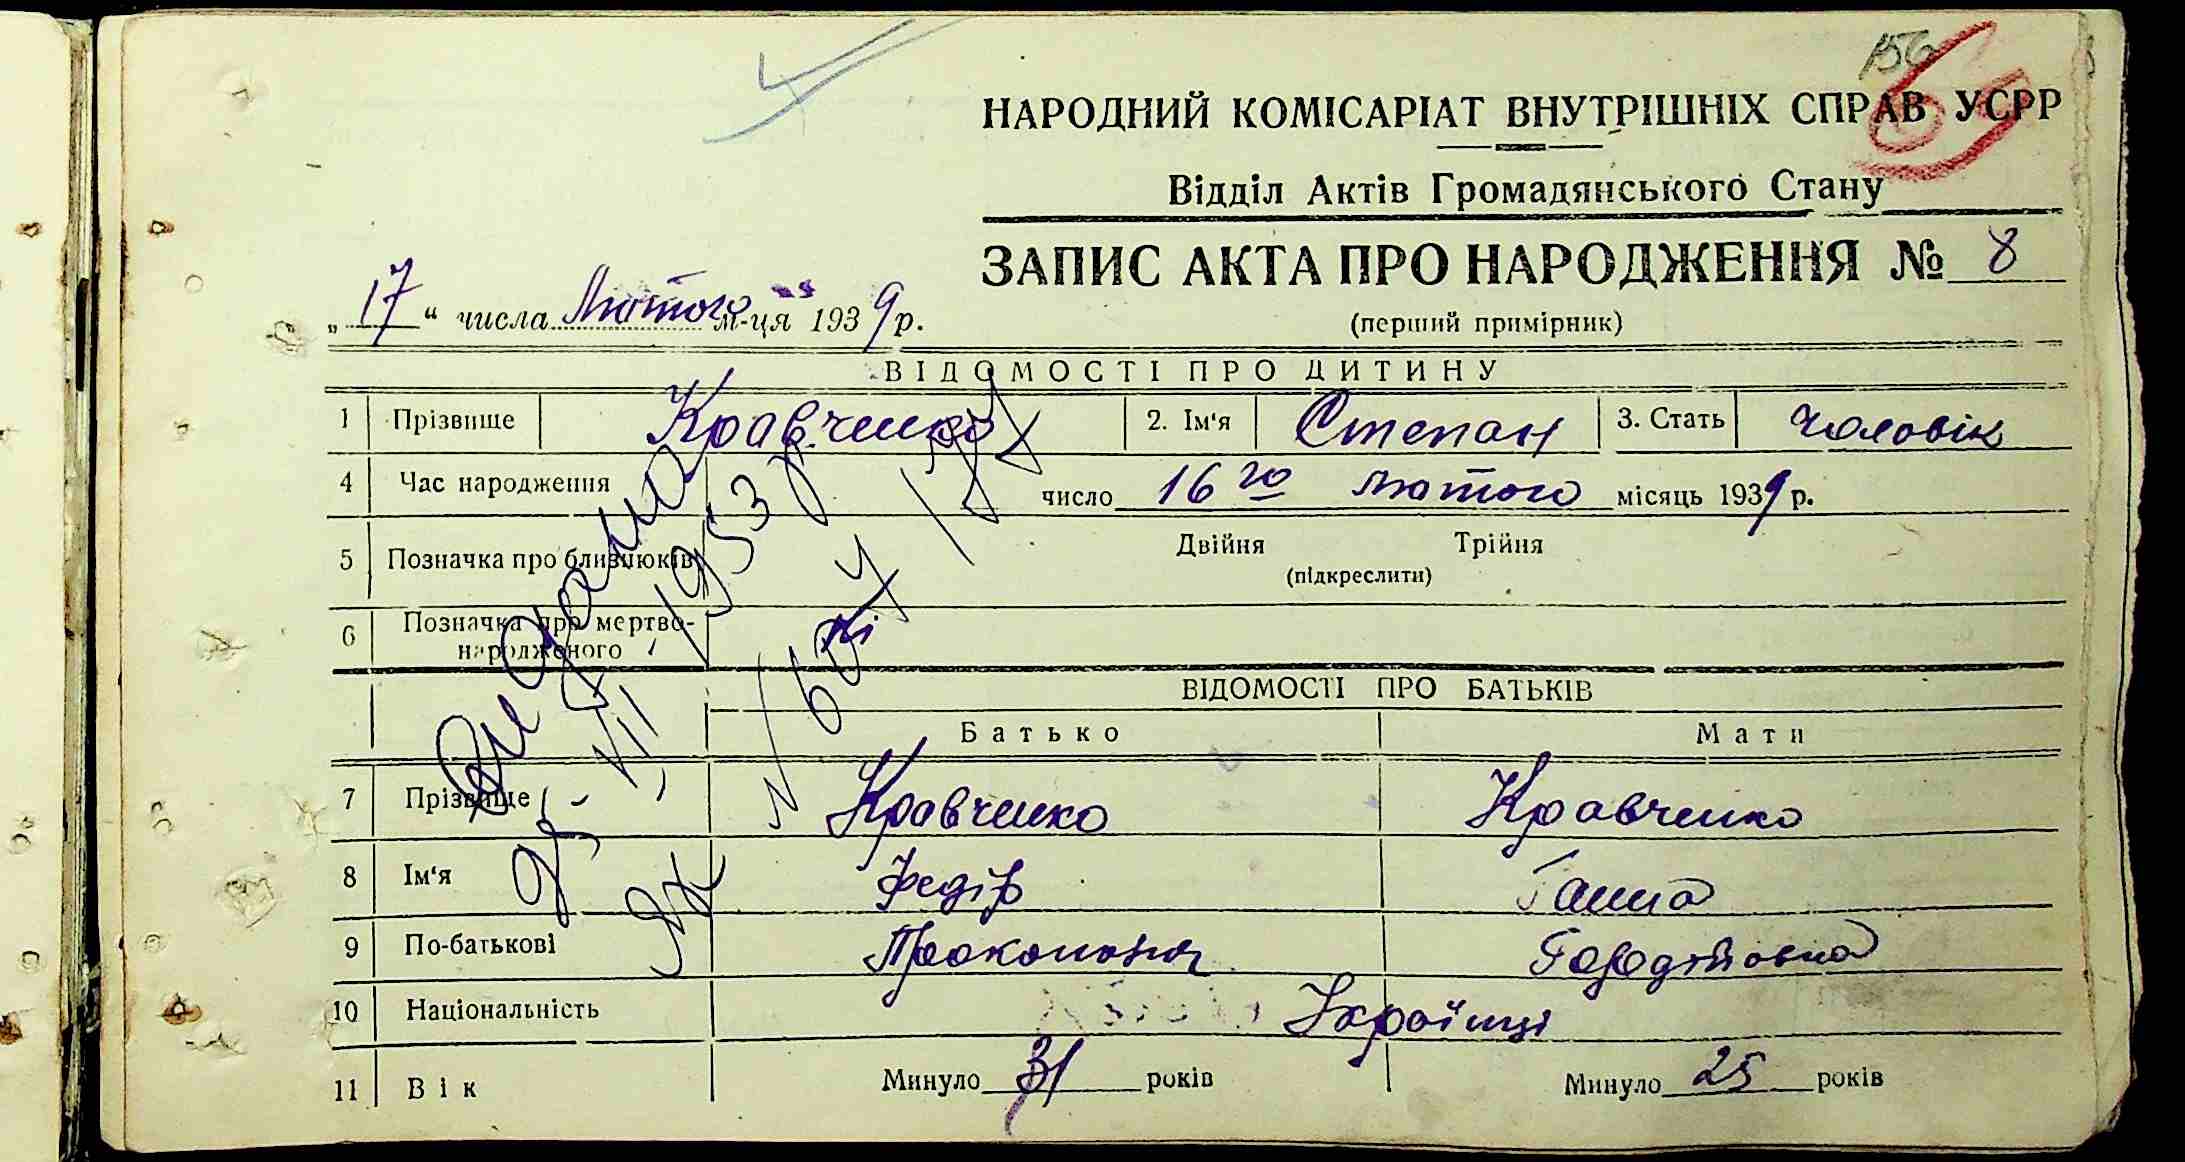 156
69
НАРОДНИЙ КОМІСАРІАТ ВНУТРІШНІХ СПРАВ УСРР
Відділ Актів Громадянського Стану
ЗАПИС АКТА ПРО НАРОДЖЕННЯ № 8
„17“ числа Лютого м-ця 1939 р.
(перший примірник)
ВІДОМОСТІ ПРО ДИТИНУ
1 Прізвище Кравченко 2. Ім'я Степан 3. Стать чоловік
4 Час народження число 16го лютого місяць 1939 р.
5 Позначка про близнюків Двійня Трійня
(підкреслити)
6 Позначка про мертво-
народженого
ВІДОМОСТІ ПРО БАТЬКІВ
Батько Мати
7 Прізвище Кравченко Кравченко
8 Ім'я Федір Ганна
9 По-батькові
10 Національність Українці
11 Вік Минуло 31 років Минуло 25 років
VII 1953 р